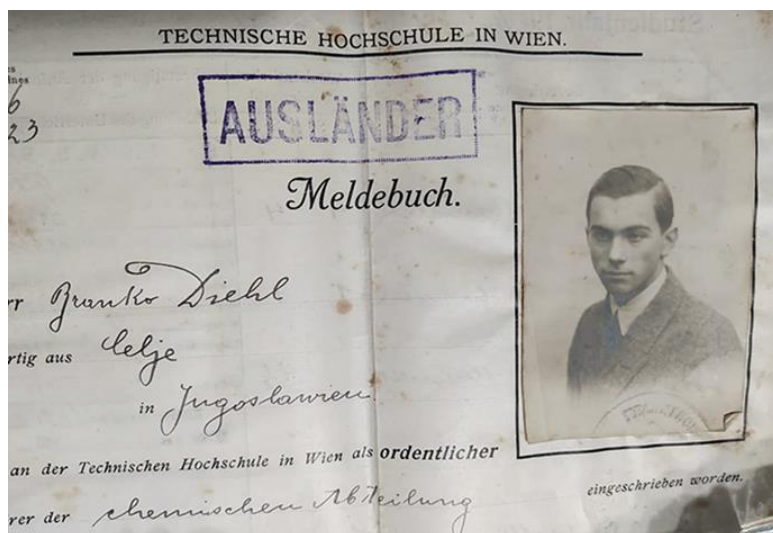 TECHNISCHE HOCHSCHULE IN WIEN.
AUSLÄNDER
23
Meldebuch.
Branko Diehl
rtig aus Celje
in Jugoslawien
an der Technischen Hochschule in Wien als ordentlicher
rer der chemischen Abteilung eingeschrieben worden.